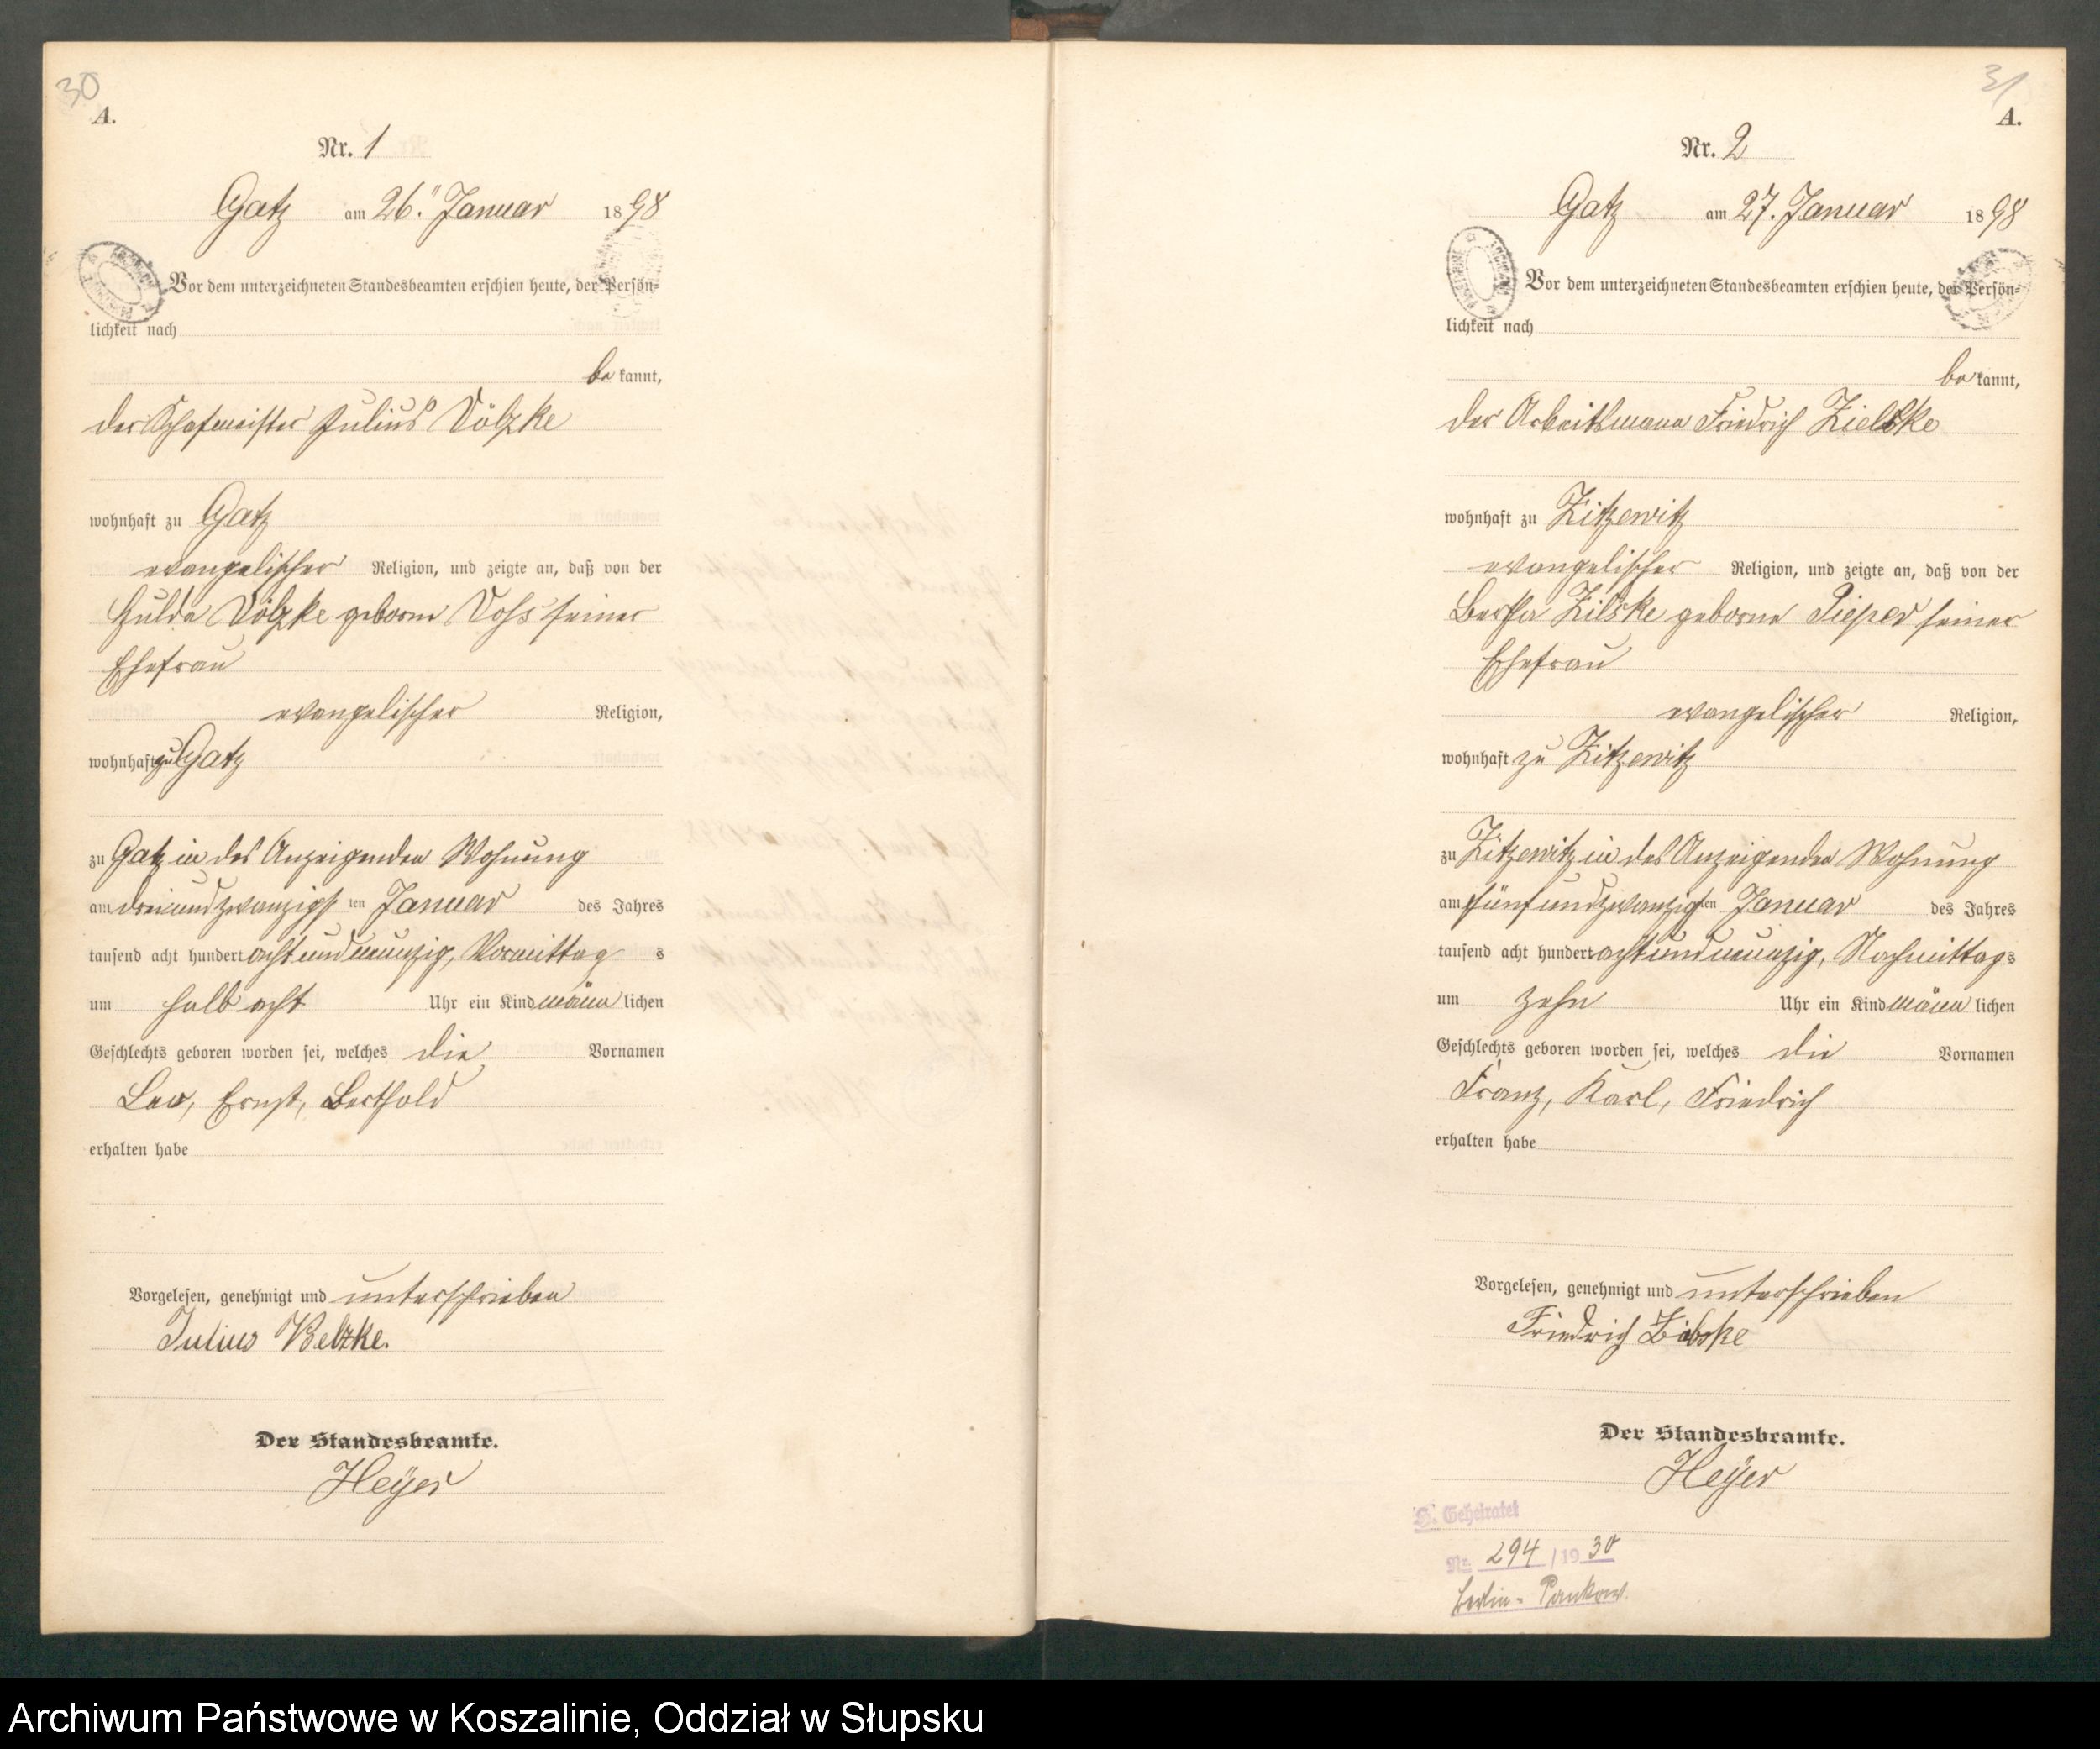 30
A.
Nr. 1
Gatz am 26. Januar 1898
Vor dem unterzeichneten Standesbeamten erschien heute, der Persön-
lichkeit nach
be kannt,
der Schafmeister Julius Völzke
wohnhaft zu Gatz
evangelischer Religion, und zeigte an, daß von der
Hulda Völzke geborne Voss seiner
Ehefrau
evangelischer Religion,
wohnhaft zu Gatz
zu Gatz in des Anzeigenden Wohnung
am dreiundzwanzigsten Januar des Jahres
tausend acht hundert achtundneunzig, Vormittags
um halb acht Uhr ein Kind männlichen
Geschlechts geboren worden sei, welches die Vornamen
Leo, Ernst, Berthold
erhalten habe
Vorgelesen, genehmigt und unterschrieben
Julius Velzke.
Der Standesbeamte.
Heyer
31
A.
Nr. 2
Gatz am 27. Januar 1898
Vor dem unterzeichneten Standesbeamten erschien heute, der Persön-
lichkeit nach
be kannt,
der Arbeitsmann Friedrich Zielske
wohnhaft zu Zitzewitz
evangelischer Religion, und zeigte an, daß von der
Bertha Zilske geborne Pieper seiner
Ehefrau
evangelischer Religion,
wohnhaft zu Zitzewitz
zu Zitzewitz in des Anzeigenden Wohnung
am fünfundzwanzigsten Januar des Jahres
tausend acht hundert achtundneunzig, Nachmittags
um zehn Uhr ein Kind männlichen
Geschlechts geboren worden sei, welches die Vornamen
Franz, Karl, Friedrich
erhalten habe
Vorgelesen, genehmigt und unterschrieben
Friedrich
Der Standesbeamte.
Heyer
Geheiratet
Nr. 294 /1930
Berlin-Pankow.
Archiwum Państwowe w Koszalinie, Oddział w Słupsku